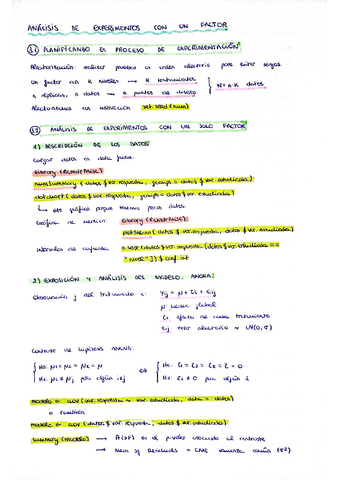 ANÁLISIS DE EXPERIMENTOS CON UN FACTOR
3.1 PLANIFICANDO EL PROCESO DE EXPERIMENTACIÓN
Aleatorización: realizar pruebas en orden aleatorio para evitar sesgos
Un factor con K niveles → K tratamientos
n réplicas, n datos → n puntos de diseño
N = n·K datos
Aleatorizamos con instrucción set.seed(num)
3.2 ANÁLISIS DE EXPERIMENTOS CON UN SOLO FACTOR
1) DESCRIPCIÓN DE LOS DATOS
Cargar datos en data frame.
library(RcmdrMisc)
numSummary(datos$var.respuesta, groups = datos$var.estudiada)
dotchart(datos$var.respuesta, groups = datos$var.estudiada)
↳ este gráfico porque tenemos pocos datos
Gráfico de medias: library(RcmdrMisc)
plotMeans(datos$var.respuesta, datos$var.estudiada)
Intervalos de confianza t.test(datos$var.respuesta[datos$var.estudiada ==
"Nivel"])$conf.int
2) EXPOSICIÓN Y ANÁLISIS DEL MODELO. ANOVA.
Observación j del tratamiento i: Yij = μ + τi + εij
μ media global
τi efecto de cada tratamiento
εij error aleatorio ~ N(0, σ)
Contraste de hipótesis ANOVA:
H0: μ1 = μ2 = μ
H1: μi ≠ μj para algún i≠j
⇔
H0: τ1 = τ2 = τ = 0
H1: τi ≠ 0 para algún i
modelo <- aov(var.respuesta ~ var.estudiada, data = datos)
o también
modelo <- aov(datos$var.respuesta ~ datos$var.estudiada)
summary(modelo) → P(>F) es el p-valor asociado al contraste
→ Mean Sq Residuals = CME varianza común (σ²)